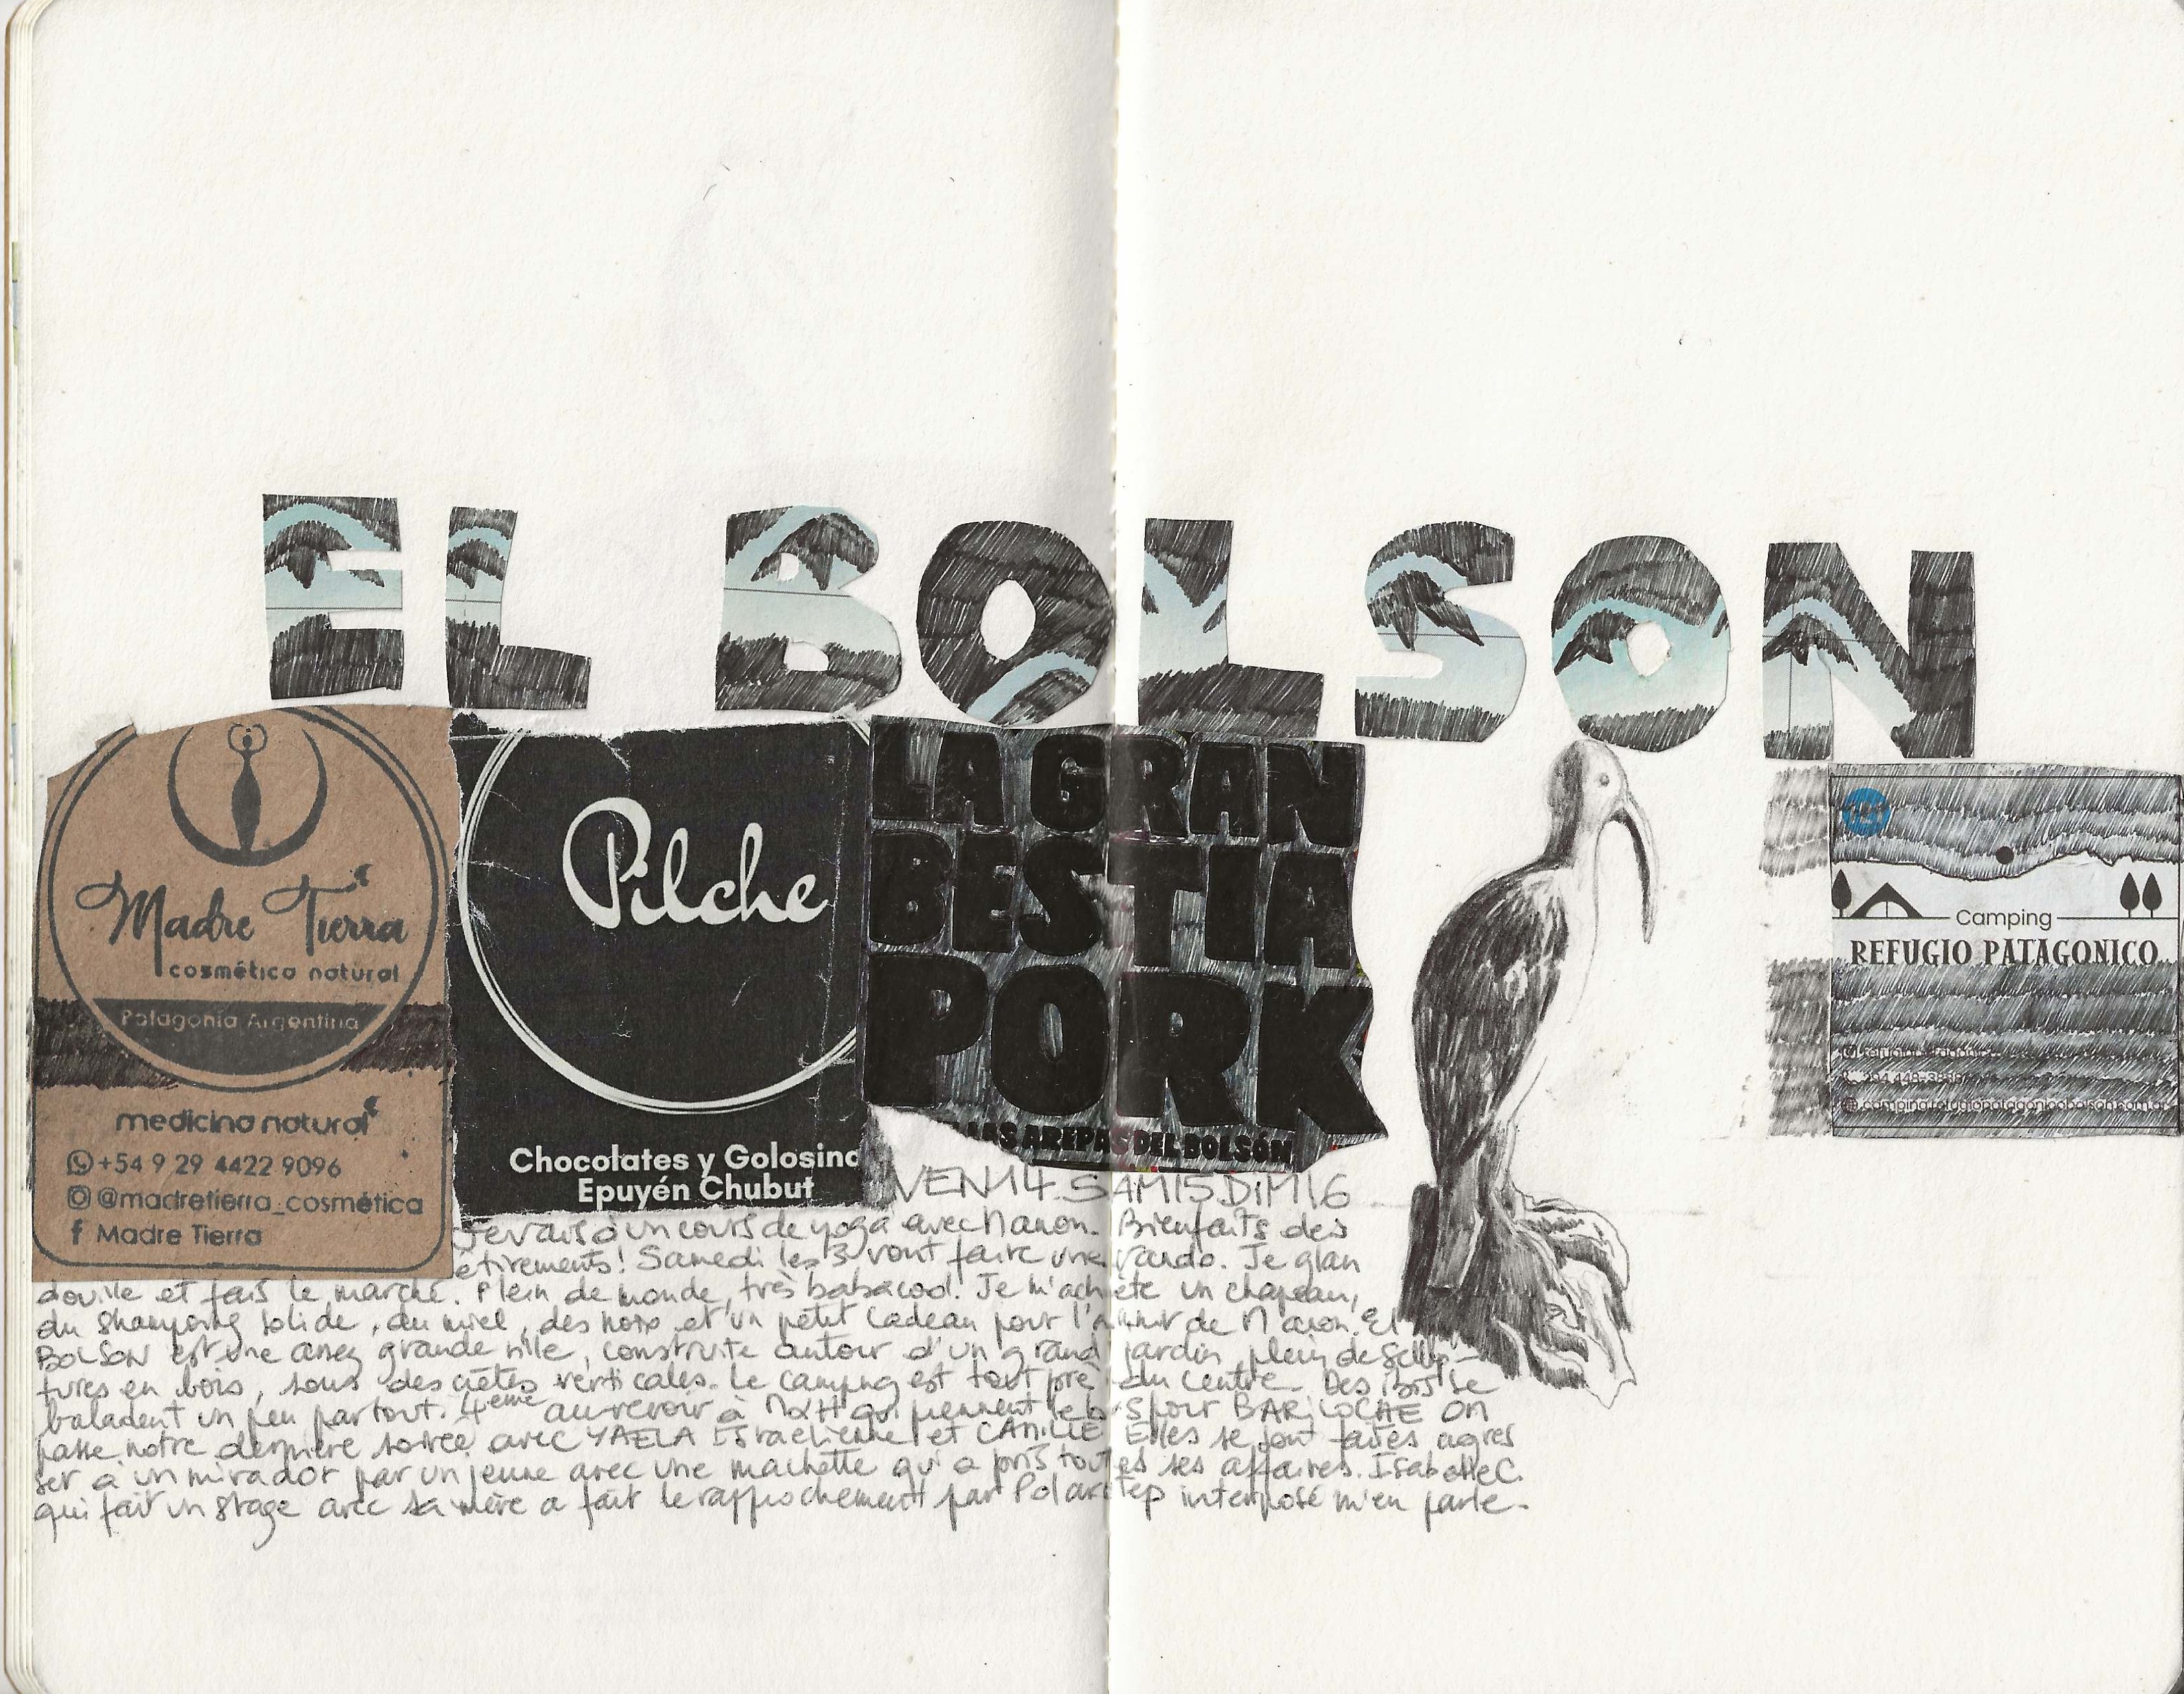 EL BOLSON
Madre Tierra
cosmética natural
Patagonia Argentina
medicina natural
+54 9 29 4422 9096
@madretierra_cosmética
f Madre Tierra
Pilche
Chocolates y Golosina
Epuyén Chubut
LA GRAN
BESTIA
PORK
LAS AREPAS DEL BOLSÓN
Camping
REFUGIO PATAGONICO
campingrefugiopatagonicobolson.com.ar
VEN14. SAM15 DIM16
Je vais à un cours de yoga avec Manon. Bienfaits des
etirements! Samedi les 3 vont faire une rando. Je glan
douille et fais le marché. Plein de monde, très babacool. Je m'achète un chapeau,
du shampoing solide, du miel, des noix et un petit cadeau pour l'anniv de Manon. El
BOLSON est une assez grande ville, construite autour d'un grand jardin plein de sculp-
tures en bois, sous des crêtes verticales. Le camping est tout près du centre. Des ibis se
baladent un peu partout. 4ème au-revoir à M&H qui prennent le bus pour BARILOCHE On
passe notre dernière soirée avec YAELA Israelienne et CAMILLE Elles se font faites agres
ser à un mirador par un jeune avec une machette qui a pris toutes ses affaires. Isabelle C.
qui fait un stage avec sa mère a fait le rapprochement par Polarstep interposé m'en parle.